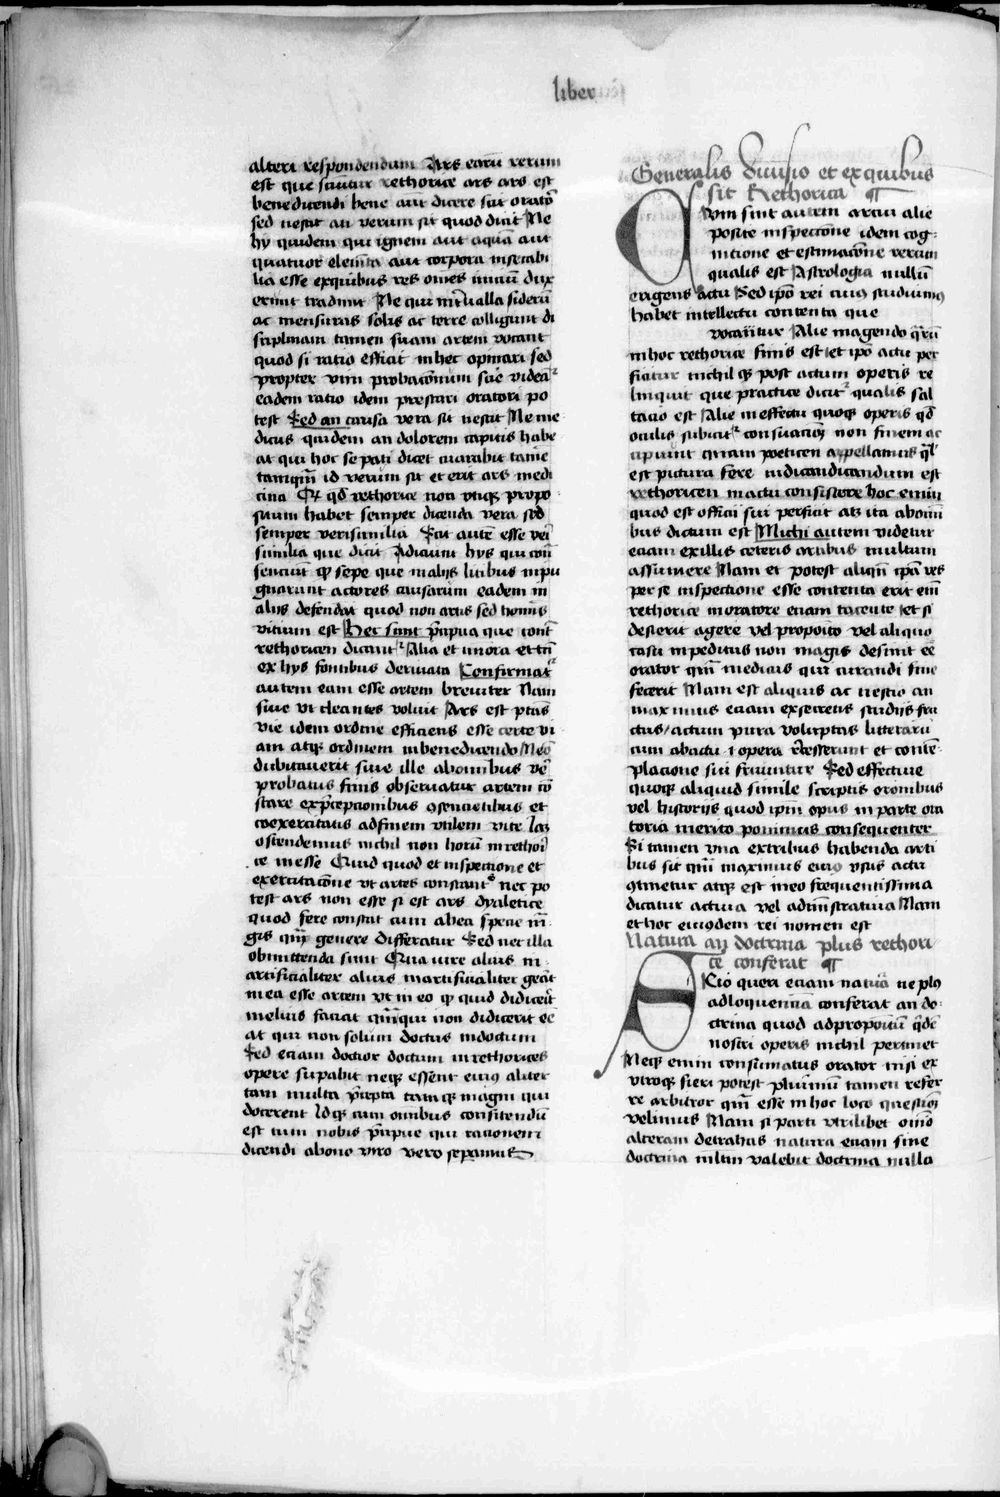 liber
alteri respondendum Ars earū rerum
est que sciūtur rethorice ars ars est
benedicendi bene aūt dicere scit oratō
sed nescit an verum sit quod dicit Ne
hy quidem qui ignem aut aquā aut
quatuor elemēta aut corpora insecabi
lia esse exquibus res omēs iniciū dux
erunt tradunt Ne qui int̄ualla siderū
ac mensuras solis ac terre colligunt di
sciplinam tamen suam artem vocant
quod si ratio efficit inhec opinari sed
propter vim probacōnum scīe videāt
eadem ratio idem prestari oratori po
test Sed an causa vera sit nescit Ne me
dicus quidem an dolorem capitis habe
at qui hoc se pati dicet curabit tamē
tamqm̄ id verum sit et erit ars medi
cina Qd qd rethorice non vtiqȝ propo
situm habet semper dicenda vera sed
semper verisimilia Scit autē esse veri
similia que dicit Adiciunt hys qui con
senciunt qȝ sepe que inalijs litibus inpu
gnarunt actores causarum eadem in
alijs defendāt quod non artis sed hominis
vitium est Hec sunt p̄cipua que contª
rethoricen dicantʳ Alia et minora et tn̄
ex hys fontibus deriuata Confirmatʳ
autem eam esse artem breuiter Nam
siue vt cleantes voluit Ars est ptās
vie idem ordine efficiens esse certe vi
am atqȝ ordinem inbenedicendo Nemo
dubitauerit siue ille abomībus
probatus finis obseruatur artem cō
stare exp̄cepcionibus ꝯsencientibus et
coexercitatis adfinem vtilem vite Iaȝ
ostendemus nichil non horū inrethori
ce inesse Quid quod et inspectione et
exercitacōne vt artes constantʳ nec po
test ars non esse si est ars dyaletice
quod fere constat cum abea specie m̄
gis qm̄ genere differatur Sed nec illa
obmittenda sunt Qua iure aliūs in
artificialiter alius inartificialiter gerāt
in ea esse artem vt in eo qȝ quid didicerit
melius faciat qm̄qui non didicerit eē
at qui non solum doctus indoctum
Sed eciam doctior doctum inrethorices
opere supabit neqȝ essent eius aliter
tam multa p̄cepta tamqȝ magni qui
docerent Idqȝ cum omībus confitendū
est tum nobis p̄cipue qui racionem
dicendi abono viro vero separamus
Generalis diuisio et exquibus
sit Rethorica ¶
Cvm sint autem artiū alie
posite inspectōne idem cog-
nitione et estimacōne rerum
qualis est Astrologia nullū
exigens actū Sed ipō rei cuius studiumqȝ
habet intellectu contenta que
vocantur Alie inagendo quarū
inhoc rethorice finis est et ipō actu per
ficitur nichil qȝ post actum operis re
linquit que practice dicitʳ qualis sal
tatio est Alie ineffectu quoqȝ operis qd
oculis subicitʳ consumacōȝ non finem ac
cipiunt quam poeticen appellamus ql̄
est pictura fere iudicandicandum est
rethoricen inactu consistere hoc enim
quod est officii sui perficit atqȝ ita abomī
bus dictum est Michi autem videtur
eciam exillis ceteris artibus multum
assumere Nam et potest aliqn̄ ipā res
per se inspectione esse contenta erit em̄
rethorice inoratore eciam tacente et si
desierit agere vel proposito vel aliquo
casu inpeditus non magis desinit eē
orator qm̄ medicus qui curandi fine
fecerit Nam est aliquis ac nescio an
maximus eciam exsecretis studijs fru
ctus/actum pura voluptas litterarū
cum abactu .i. opera recesserunt et contē-
placione sui fruuntur Sed effectiue
quoqȝ aliquid simile scriptis oronibus
vel historijs quod ipm̄ opus in parte ora
toria merito ponimus consequenter
Si tamen vna extribus habenda arti
bus sit qm̄ maximus eius vsus actu
ꝯtinetur atqȝ est ineo frequentissima
dicatur actiua vel administratiua Nam
et hoc eiusdem rei nomen est
Natura an doctrina plus rethori-
ce conferat ¶
Acio queri eciam natura ne plus
adloquentiā conferat an do-
ctrina quod adpropositū quidē
nostri operis nichil pertinet
Neqȝ enim consūmatus orator nisi ex
vtroqȝ fieri potest plurimū tamen refer
re arbitror qm̄ esse inhoc loco questionem
velimus Nam si parti vtrilibet omīo
alteram detrahas natura eciam sine
doctrina mltm valebit doctrina nulla